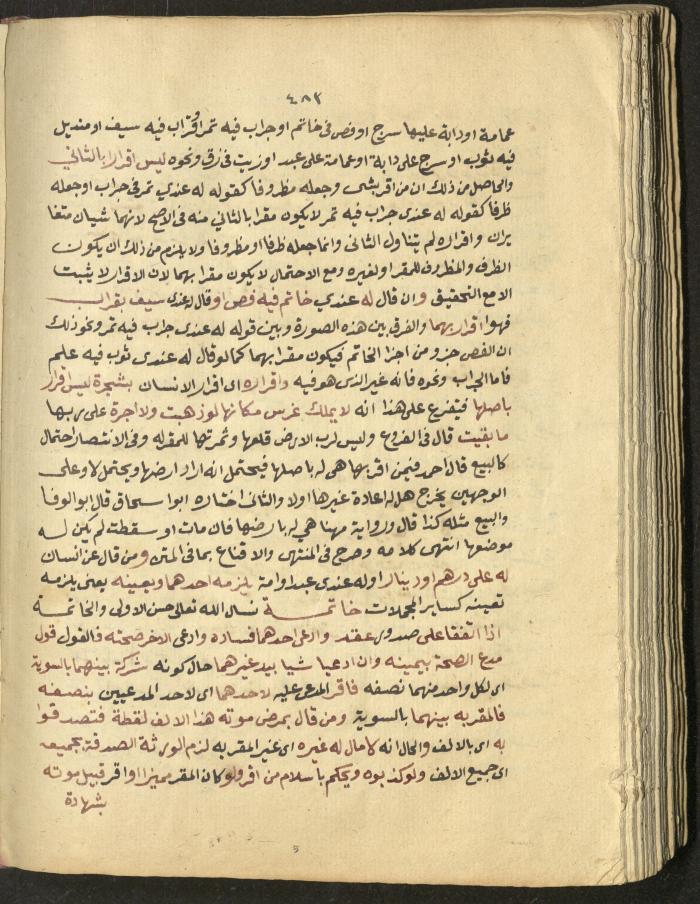 ٤٨٢
عمامة او دابة عليها سرج او فص في خاتم او جراب فيه تمر او قراب فيه سيف او منديل
فيه ثوب او سرج على دابة او عمامة على عبد او زيت في زق ونحوه ليس اقرارا بالثاني
والحاصل من ذلك ان من اقر بشي وجعله مظروفا كقوله له عندي تمر في جراب او جعله
ظرفا كقوله له عندي جراب فيه تمر لا يكون مقرا بالثاني منه في الاصح لانهما شيان متغا
يران واقراره لم يتناول الثاني وانما جعله ظرفا او مظروفا ولا يلزم من ذلك ان يكون
الظرف والمظروف للمقر او لغيره ومع الاحتمال لا يكون مقرا بهما لان الاقرار لا يثبت
الا مع التحقيق وان قال له عندي خاتم فيه فص او قال له عندي سيف بقراب
فهو اقرار بهما والفرق بين هذه الصورة وبين قوله له عندي جراب فيه تمر ونحو ذلك
ان الفص جزو من اجزا الخاتم فيكون مقرا بهما كما لو قال له عندي ثوب فيه علم
فاما الجراب ونحوه فانه غير الذي هو فيه واقراره اي اقرار الانسان بشجرة ليس اقرار
باصلها فيتفرع على هذا انه لا يملك غرس مكانها لو ذهبت ولا اجرة على ربها
ما بقيت قال في الفروع وليس لرب الارض قلعها وثمرتها للمقر له وفي الانتصار احتمال
كالبيع قال احمد فيمن اقر بها هي له باصلها فيحتمل انه اراد ارضها ويحتمل لا وعلى
الوجهين يخرج هل له اعادة غيرها اولا والثاني اختاره ابو اسحاق قال ابو الوفا
والبيع مثله كذا قال ورواية مهنا هي له بارضها فان مات او سقطت لم يكن له
موضعها انتهى كلامه وصرح في المنتهى والاقناع بما في المتن ومن قال عن انسان
له علي درهم او دينار او له عندي عبد او امة يلزمه احدهما ويعينه يعني يلزمه
تعينه كساير المجملات خاتمة نسال الله تعالى حسن الاولى والخاتمة
اذا اتفقا على صدور عقد وادعى احدهما فساده وادعى الاخر صحته فالقول قول
مدع الصحة بيمينه وان ادعيا شيا بيد غيرهما حال كونه شركة بينهما بالسوية
اي لكل واحد منهما نصفه فاقر المدعى عليه لاحدهما اي لاحد المدعيين بنصفه
فالمقر به بينهما بالسوية ومن قال بمرض موته هذا الالف لقطة فتصدقوا
به اي بالالف والحال انه لا مال له غيره اي غير المقر به لزم الورثة الصدقة بجميعه
اي جميع الالف ولو كذبوه ويحكم باسلام من اقر ولو كان المقر مميزا او اقر قبيل موته
بشهادة